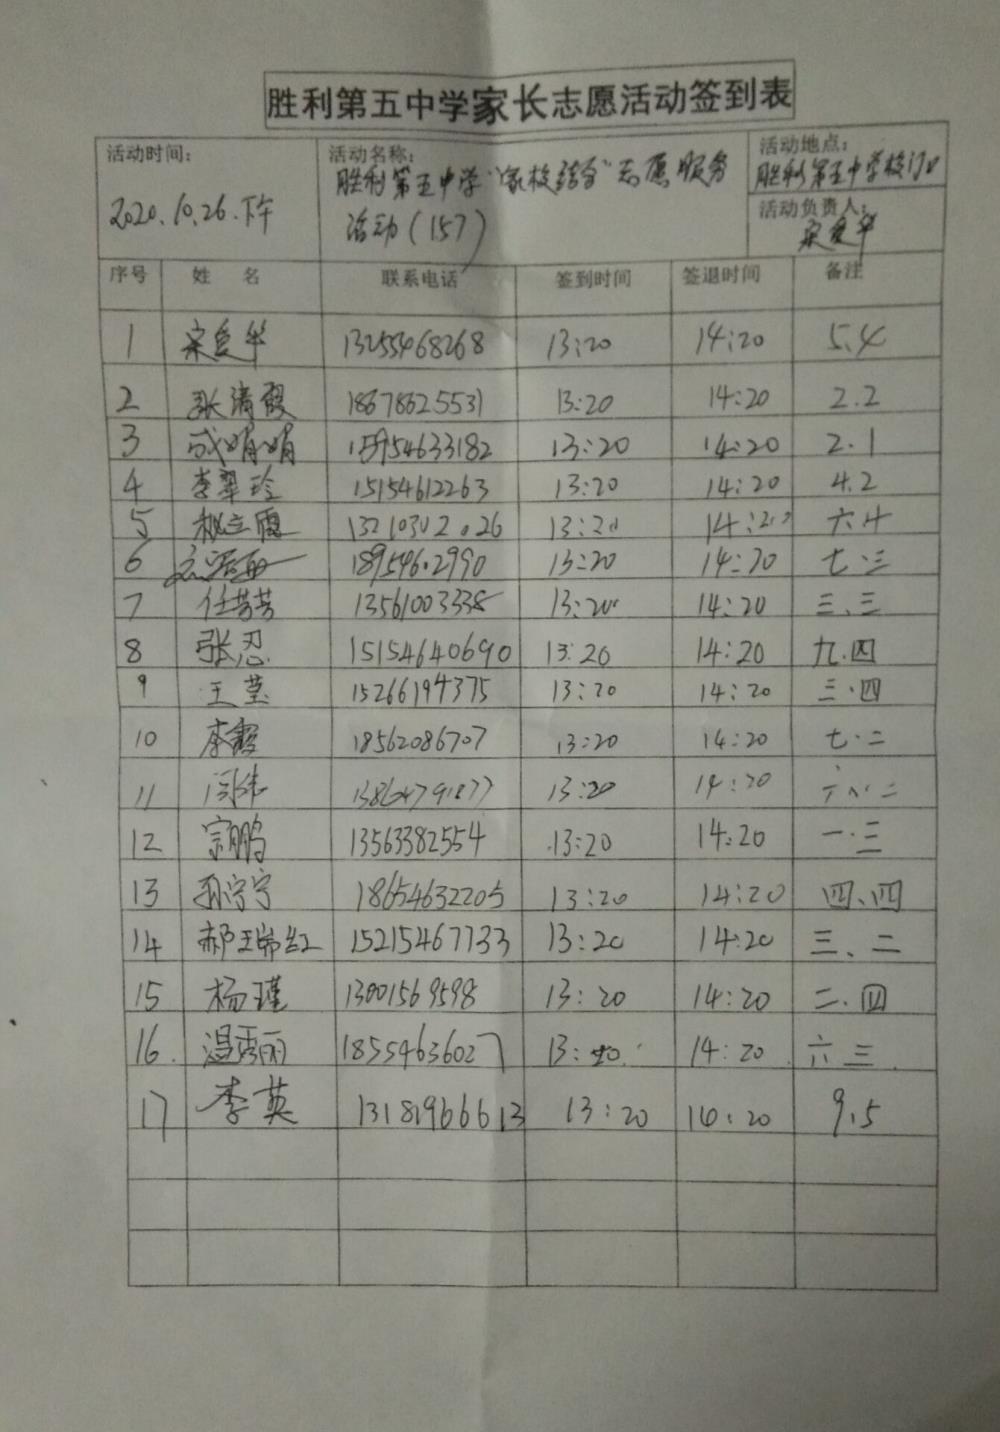 胜利第五中学家长志愿活动签到表
活动时间：
2020.10.26.下午
活动名称：
胜利第五中学“家校结合”志愿服务
活动（157）
活动地点：
胜利第五中学校门口
活动负责人：
宋爱华
序号 姓 名 联系电话 签到时间 签退时间 备注
1 宋爱华 13255468268 13:20 14:20 5.4
2 张清霞 18678625531 13:20 14:20 2.2
3 成娟娟 15954633182 13:20 14:20 2.1
4 李翠玲 15154612263 13:20 14:20 4.2
5 13210302026 13:20 14:20 六.4
6 18954602990 13:20 14:20 七.三
7 任芳芳 13561003338 13:20 14:20 三.三
8 张忍 15154640690 13:20 14:20 九.四
9 王莹 15266194375 13:20 14:20 三.四
10 李霞 18562086707 13:20 14:20 七.二
11 13:20 14:20
12 宗鹏 13563382554 13:20 14:20 一.三
13 孙宁宁 18654632205 13:20 14:20 四、四
14 郝瑞红 15215467733 13:20 14:20 三、二
15 杨瑾 13001569598 13:20 14:20 二.四
16. 温秀丽 18554636027 13:20 14:20 六 三
17 李英 13181966613 13:20 14:20 9.5